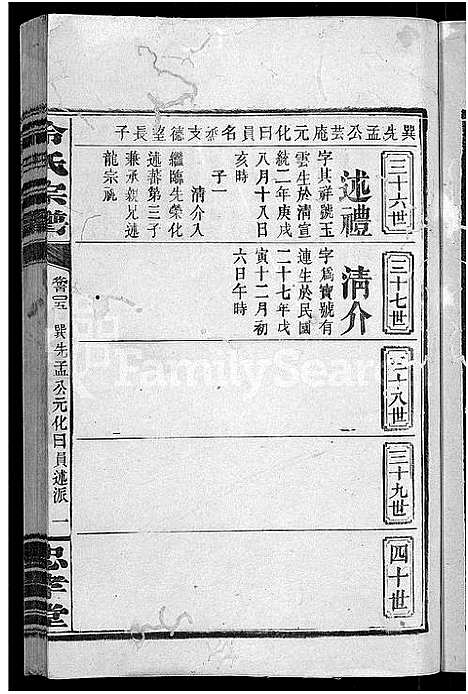 巽先孟公芸庵元化曰員名丞支德望長子
三十六世
述禮
字其祥號玉
雲生於清宣
統二年庚戌
八月十八日
亥時
子一
清介入
繼臨先榮化
述都第三子
兼承親兄述
龍宗祧
三十七世
清介
字爲寶號有
連生於民國
二十七年戊
寅十二月初
六日午時
三十八世
三十九世
四十世
氏宗譜
巽先孟公元化曰員述派
一
忠孝堂
FamilySearch